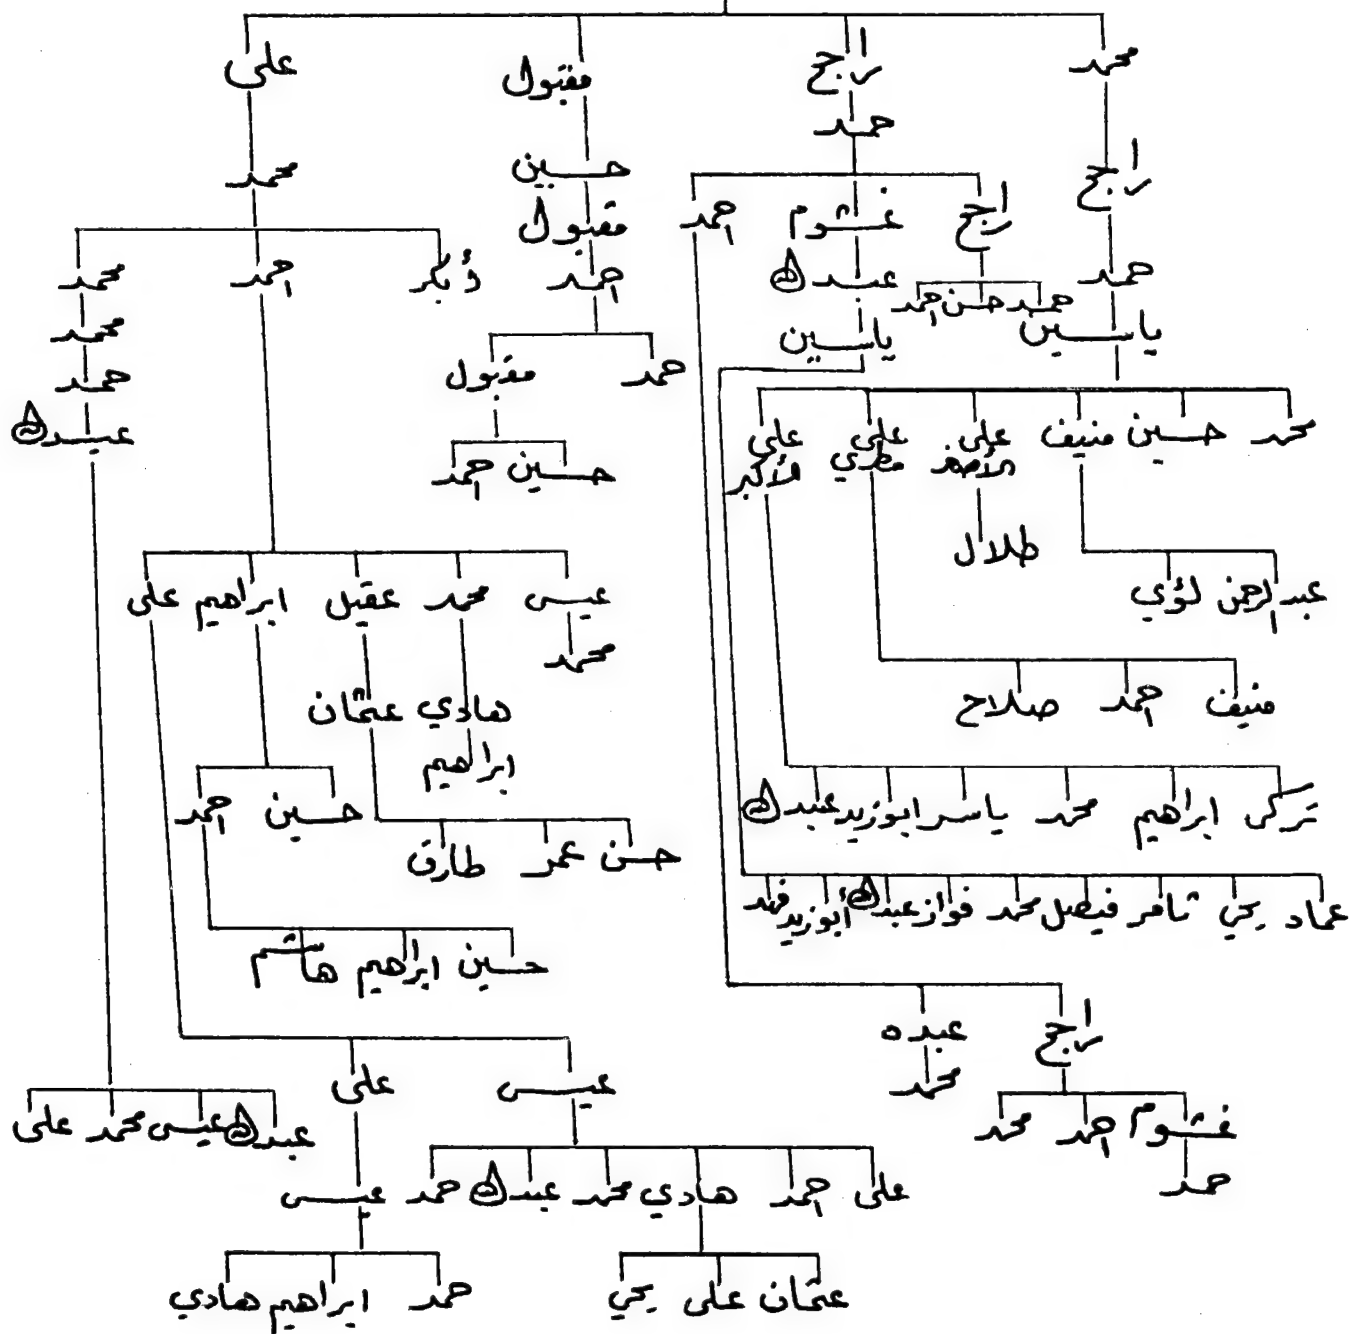 محمد راجح مقبول على
حمد
راجح حسين محمد
راجح غشوم احمد مقبول
حمد عبدالله احمد ذبكر احمد محمد
حمد حسن احمد
ياسين ياسين محمد
حمد مقبول حمد
محمد حسين منيف على الأصغر على مطري على الأكبر عبدالله
حسين احمد
طلال
عبدالرحمن لؤي عيسى محمد عقيل ابراهيم على
محمد
منيف احمد صلاح هادي عثمان
ابراهيم
تركى ابراهيم محمد ياسر ابوزيد عبدالله حسين احمد
حسن عمر طارق
عماد يحي ثامر فيصل محمد فواز عبدالله أبوزيد فهد
حسين ابراهيم هاشم
راجح عبده
محمد عيسى على
غشوم احمد محمد عبدالله عيسى محمد على
حمد على احمد هادي محمد عبدالله حمد عيسى
عثمان على يحي حمد ابراهيم هادي